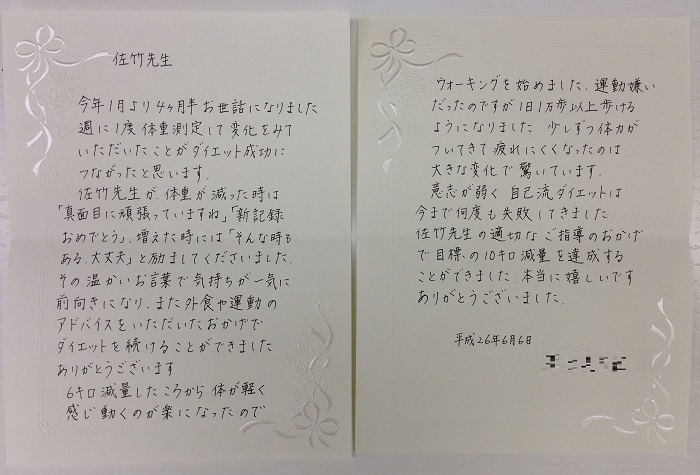 佐竹先生
今年1月より4ヶ月半お世話になりました
週に1度体重測定して変化をみて
いただいたことがダイエット成功に
つながったと思います.
佐竹先生が、体重が減った時は
「真面目に頑張っていますね」「新記録
おめでとう」、増えた時には「そんな時も
ある、大丈夫」と励ましてくださいました.
その温かいお言葉で気持ちが一気に
前向きになり、また外食や運動の
アドバイスをいただいたおかげで
ダイエットを続けることができました
ありがとうございます
6キロ減量したころから体が軽く
感じ動くのが楽になったので
ウォーキングを始めました、運動嫌い
だったのですが1日1万歩以上歩ける
ようになりました、少しずつ体力が
ついてきて疲れにくくなったのは
大きな変化で驚いています.
意志が弱く自己流ダイエットは
今まで何度も失敗してきました
佐竹先生の適切なご指導のおかげ
で目標の10キロ減量を達成する
ことができました、本当に嬉しいです
ありがとうございました.
平成26年6月6日